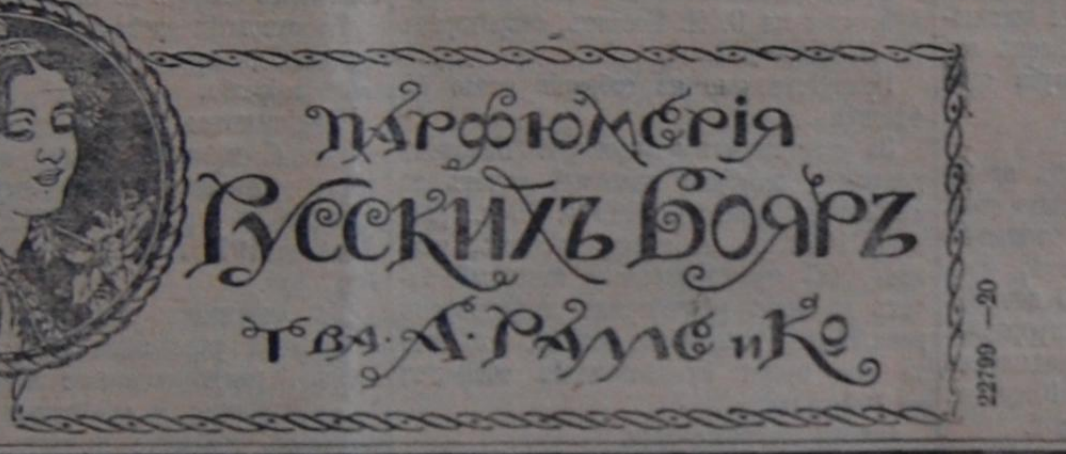 Парфюмерія
Русскихъ Бояръ
Т-ва. А. Рамме и Ко
22799—20